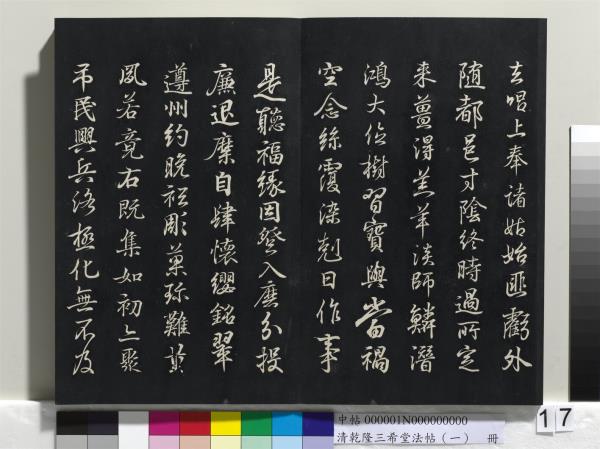 去唱上奉諸姑始匪虧外
随都邑寸陰終時過所定
来薑淂羔羊淡師鱗潛
鴻大位樹習寶與當禍
空念絲覆染剋日作事
是聽福緣因登入分投
廉退縻自肆懷纓銘翠
遵州約晚松彫菓珍難
夙若竟右既集如初上聚
吊民興兵洛極化無不及
中帖 000001N000000000
清乾隆三希堂法帖(一) 冊
17